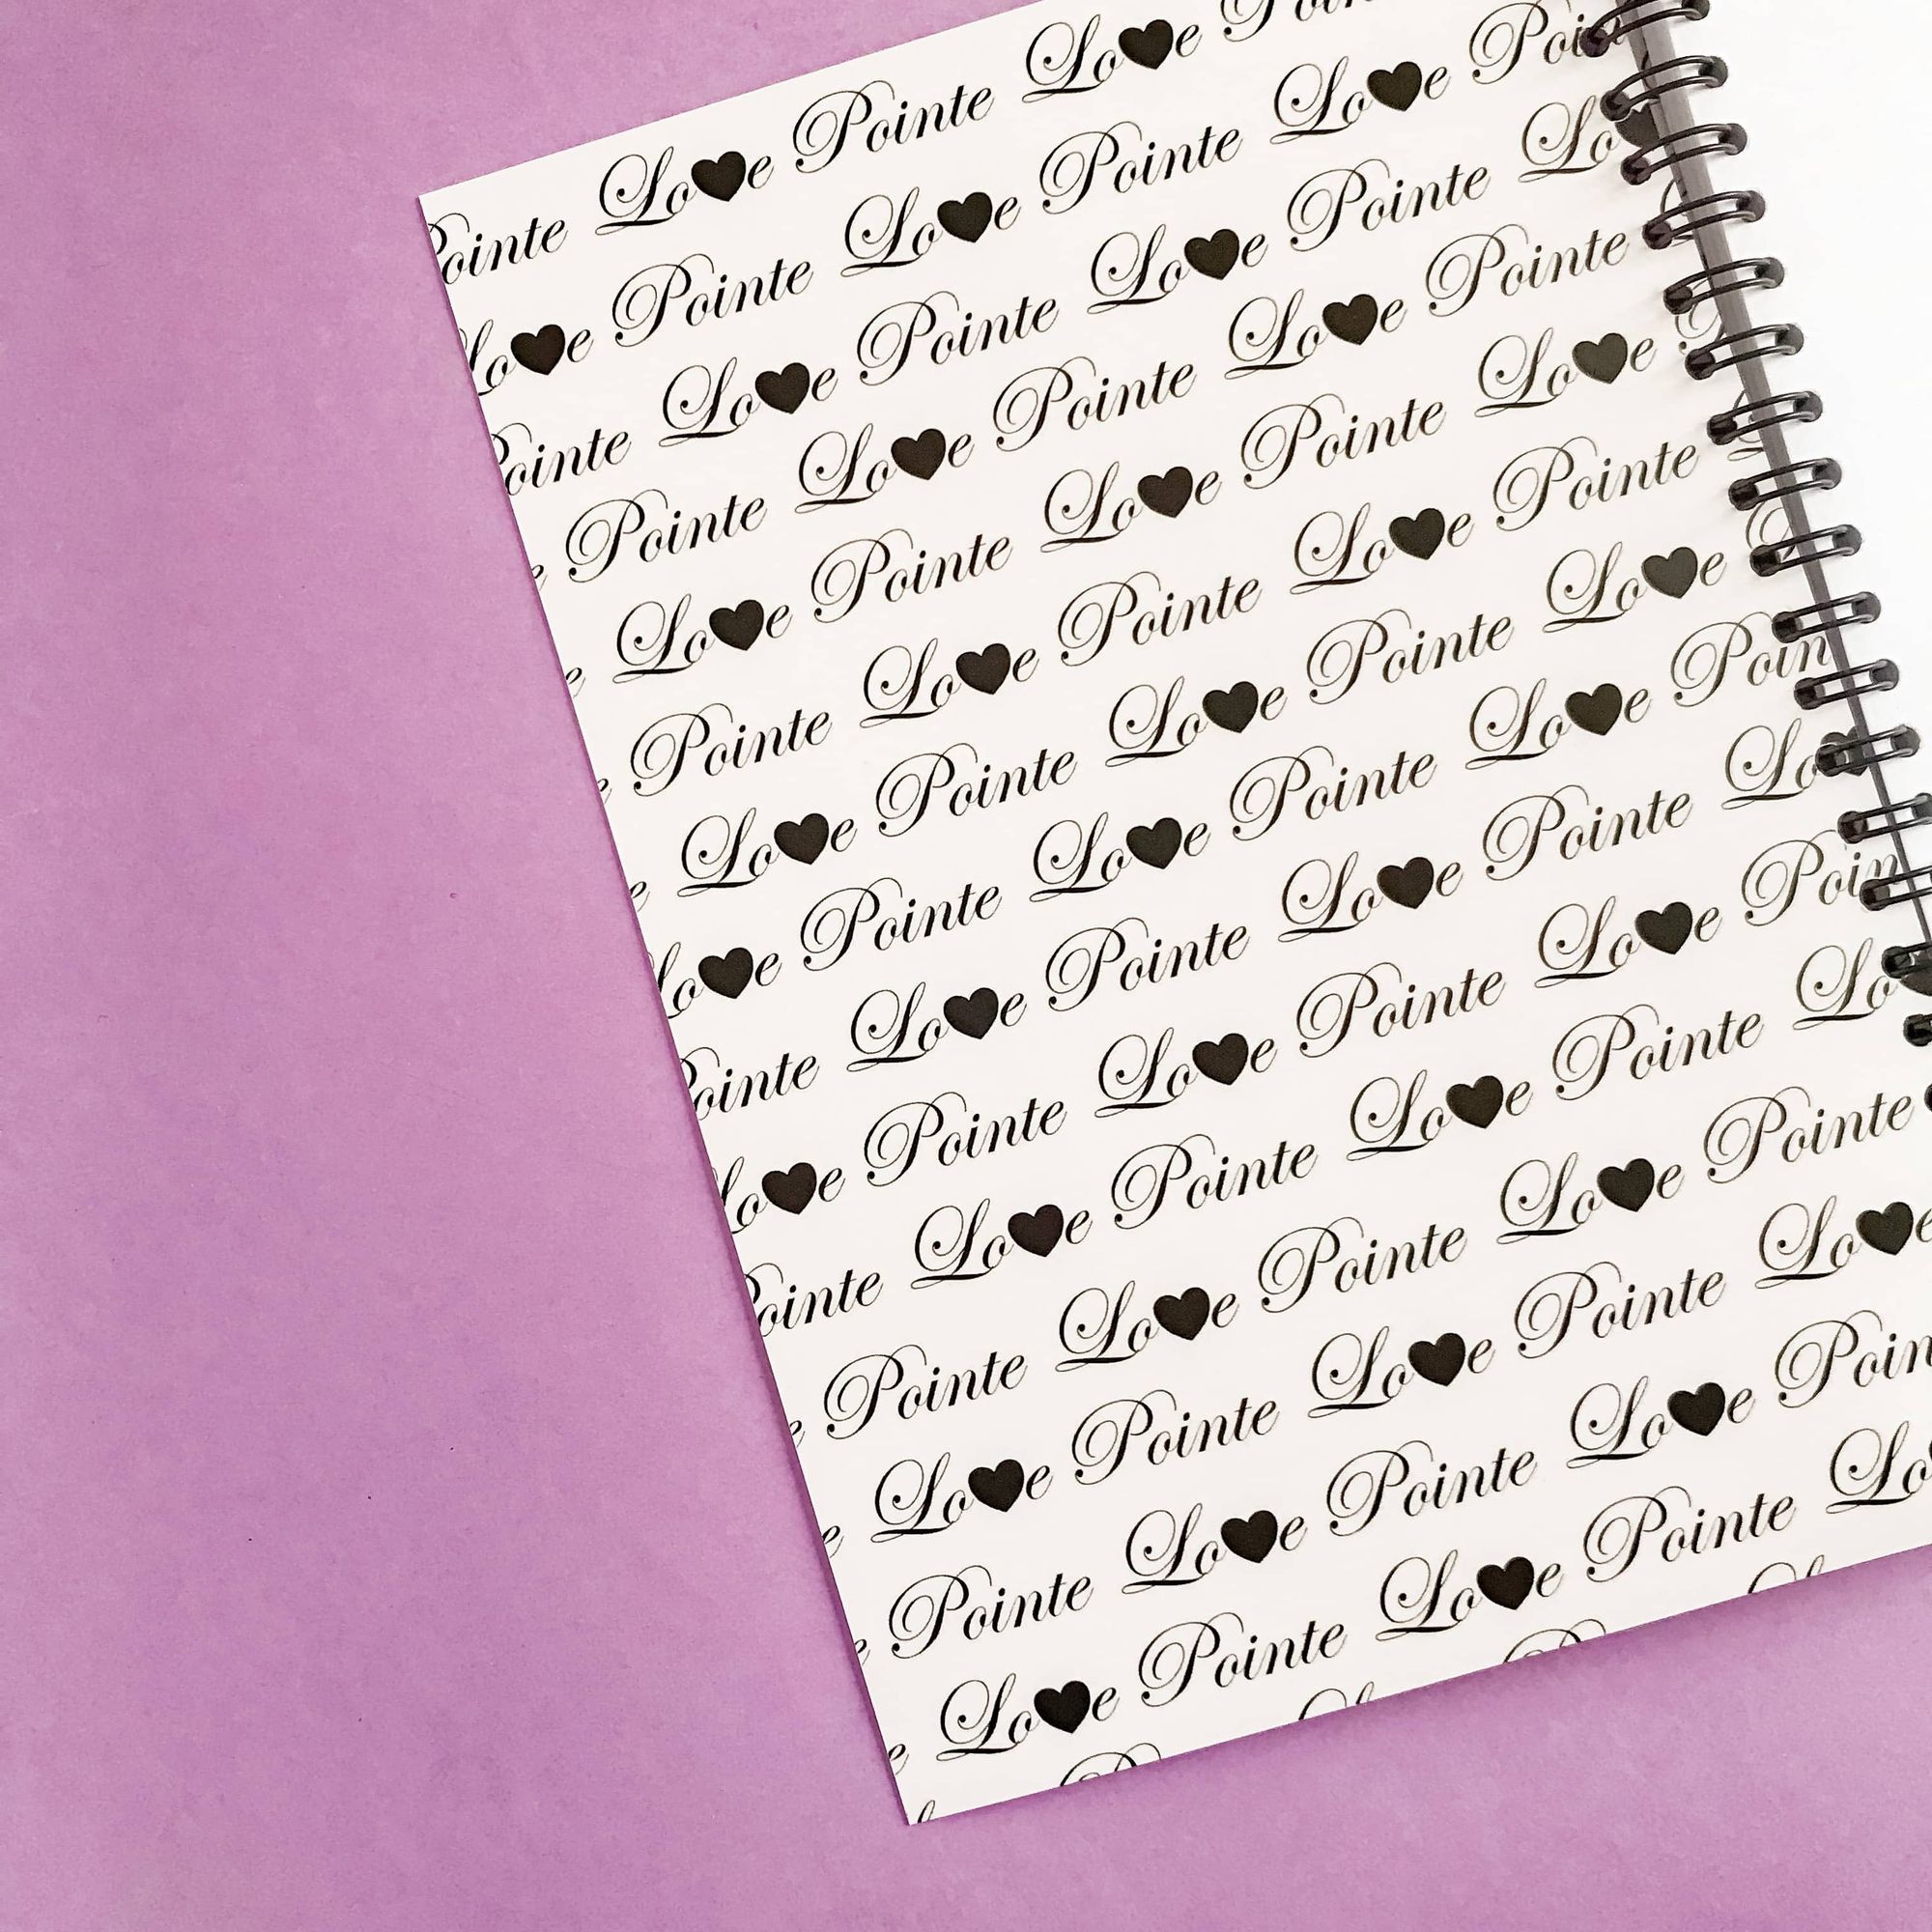 Pointe Lo♥e Pointe Lo♥e
Lo♥e Pointe Lo♥e Pointe Lo♥e
Pointe Lo♥e Pointe Lo♥e Pointe
Pointe Lo♥e Pointe Lo♥e Pointe
Lo♥e Pointe Lo♥e Pointe Lo♥e
Pointe Lo♥e Pointe Lo♥e Pointe
Lo♥e Pointe Lo♥e Pointe Lo♥e
Lo♥e Pointe Lo♥e Pointe Lo♥e Poin
Pointe Lo♥e Pointe Lo♥e Pointe Lo♥
Lo♥e Pointe Lo♥e Pointe Lo♥e Poin
Pointe Lo♥e Pointe Lo♥e Pointe Lo♥
Pointe Lo♥e Pointe Lo♥e Pointe
Lo♥e Pointe Lo♥e Pointe Lo♥e
Pointe Lo♥e Pointe Lo♥e Poin
Lo♥e Pointe Lo♥e Pointe Lo